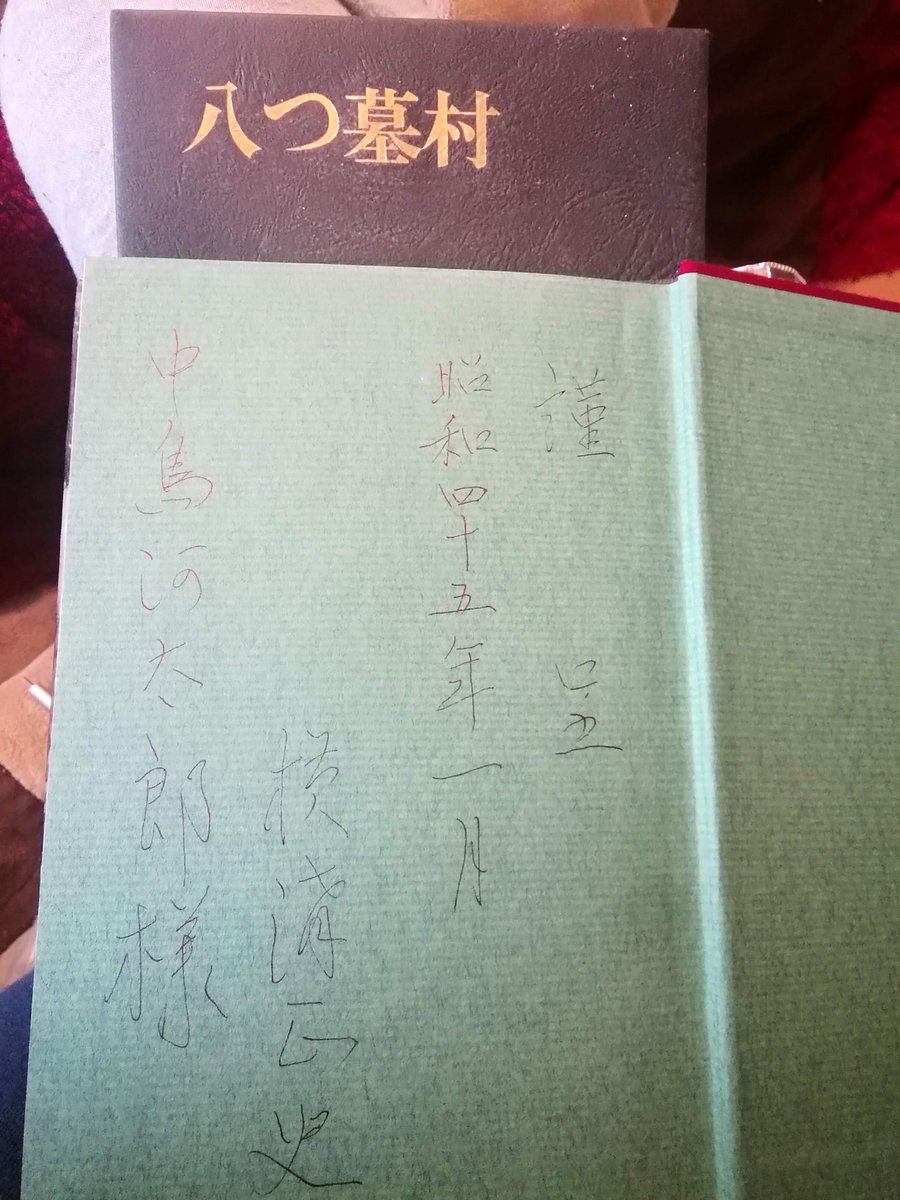 八つ墓村
謹呈
昭和四十五年一月
横溝正史
中島河太郎様